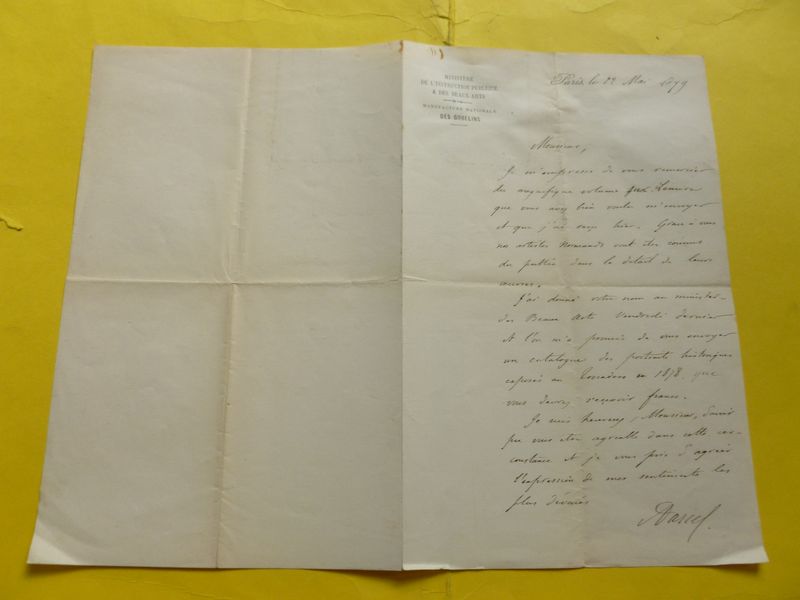 MINISTÈRE
DE L'INSTRUCTION PUBLIQUE
& DES BEAUX-ARTS
MANUFACTURE NATIONALE
DES GOBELINS
Paris, le 12 Mai 1879
Monsieur,
Je m'empresse de vous remercier
du magnifique volume
que vous avez bien voulu m'envoyer
et que j'ai reçu hier. Grâce à vous
nos artistes Normands vont être connus
du public dans le détail de leurs
œuvres.
J'ai donné votre nom au ministère
des Beaux Arts Vendredi dernier
et l'on m'a promis de vous envoyer
un catalogue des portraits historiques
exposés au Trocadéro en 1878 que
vous devez recevoir franco.
Je suis heureux, Monsieur, d'avoir
pu vous être agréable dans cette cir-
constance et je vous prie d'agréer
l'expression de mes sentiments les
plus dévoués
A Darcel